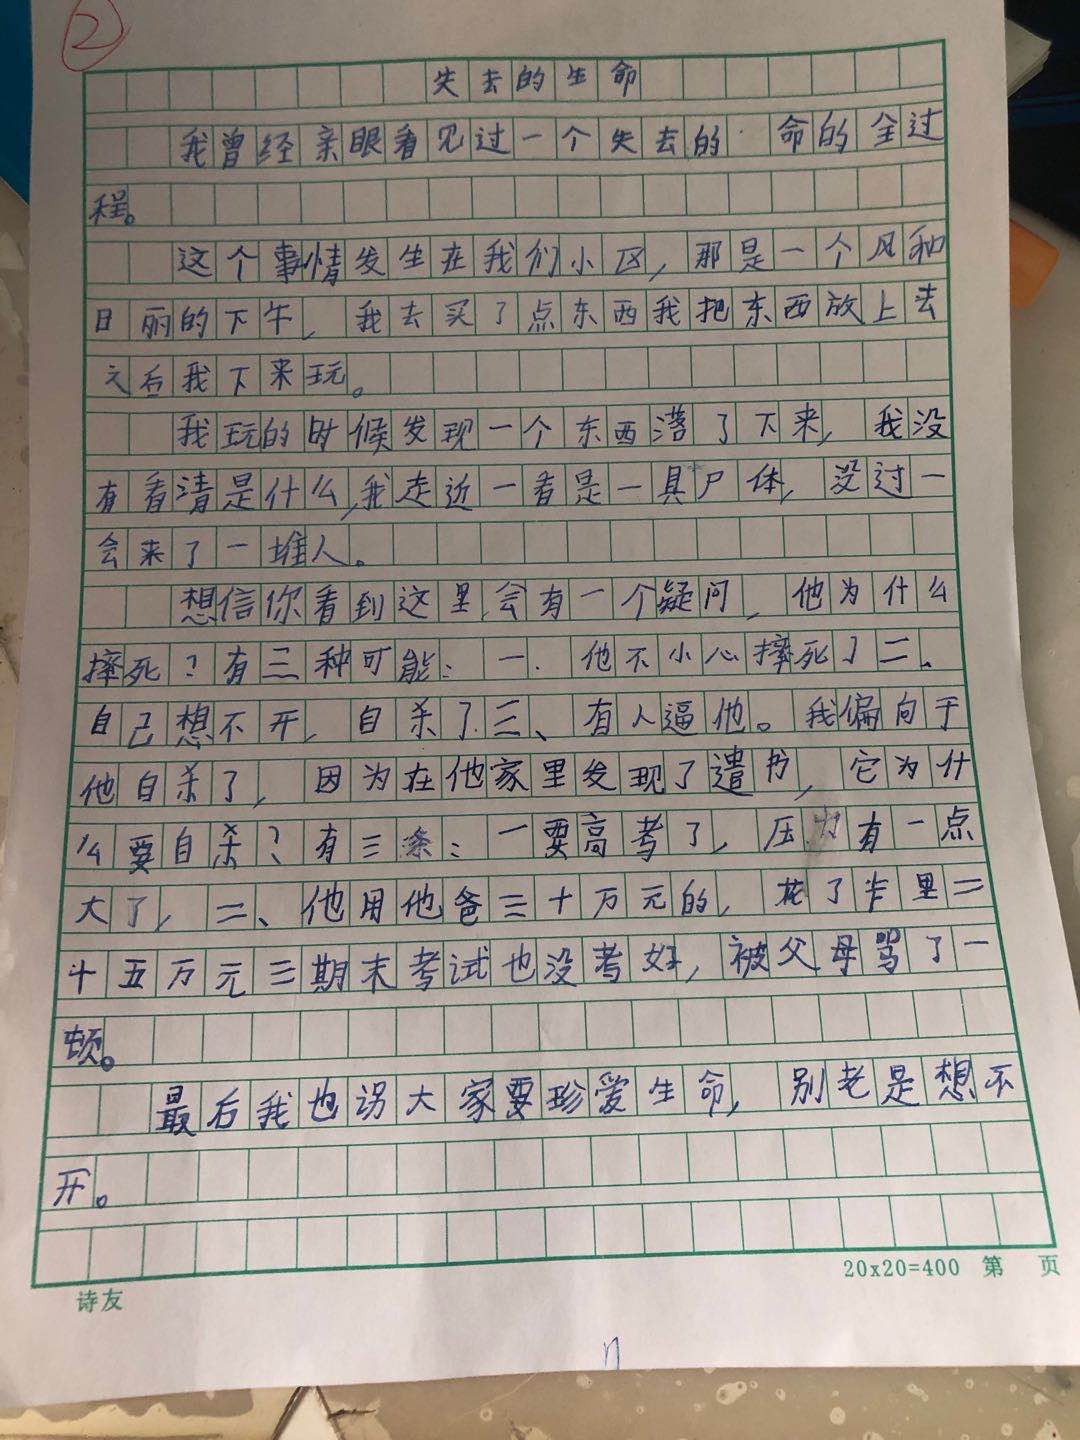 ②
失去的生命
我曾经亲眼看见过一个失去的 命的全过
程。
这个事情发生在我们小区，那是一个风和
日丽的下午，我去买了点东西我把东西放上去
之后我下来玩。
我玩的时候发现一个东西落了下来，我没
有看清是什么，我走近一看是一具尸体，没过一
会来了一堆人。
想信你看到这里会有一个疑问，他为什么
摔死？有三种可能：一.他不小心摔死了二、
自己想不开，自杀了.三、有人逼他。我偏向于
他自杀了，因为在他家里发现了遣书，它为什
么要自杀？有三条：一要高考了，压力有一点
大了，二、他用他爸三十万元的，花了卡里二
十五万元三期末考试也没考好，被父母骂了一
顿。
最后我也说大家要珍爱生命，别老是想不
开。
20x20=400 第 页
诗友